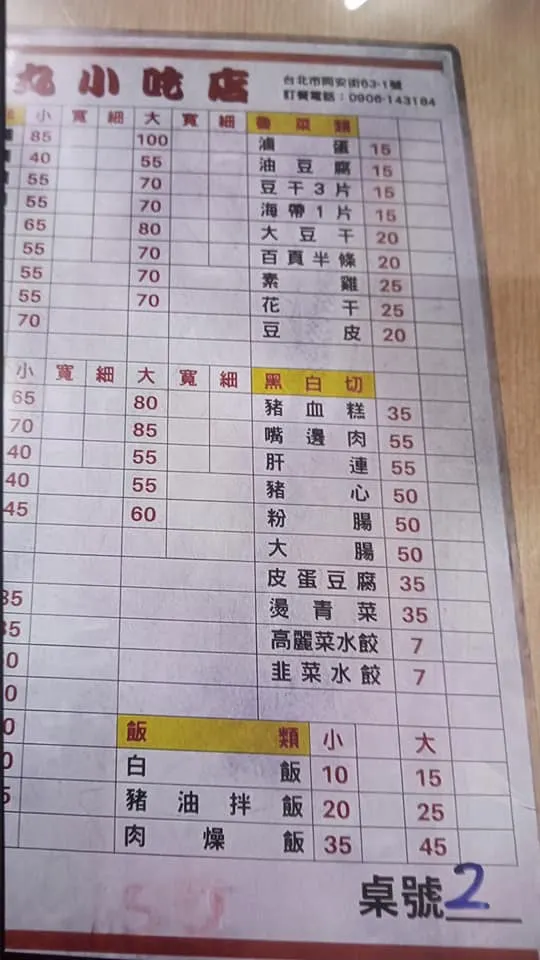 丸小吃店
台北市同安街63-1號
訂餐電話：0906-143184
小 寬 細 大 寬 細 魯菜類
85 100 滷蛋 15
40 55 油豆腐 15
55 70 豆干3片 15
55 70 海帶1片 15
65 80 大豆干 20
55 70 百頁半條 20
55 70 素雞 25
55 70 花干 25
70 豆皮 20
小 寬 細 大 寬 細 黑白切
65 80 豬血糕 35
70 85 嘴邊肉 55
40 55 肝連 55
40 55 豬心 50
45 60 粉腸 50
大腸 50
皮蛋豆腐 35
35 燙青菜 35
35 高麗菜水餃 7
0 韭菜水餃 7
0
0 飯類 小 大
0 白飯 10 15
5 豬油拌飯 20 25
肉燥飯 35 45
桌號 2